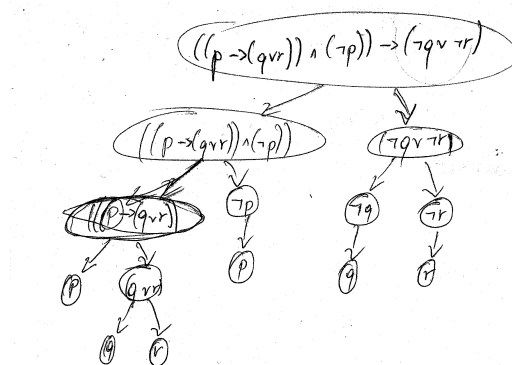 ((p→(q∨r)) ∧ (¬p)) → (¬q∨¬r)
((p→(q∨r)) ∧ (¬p))
(¬q∨¬r)
(p→(q∨r))
¬p
¬q
¬r
p
q∨r
p
q
r
q
r